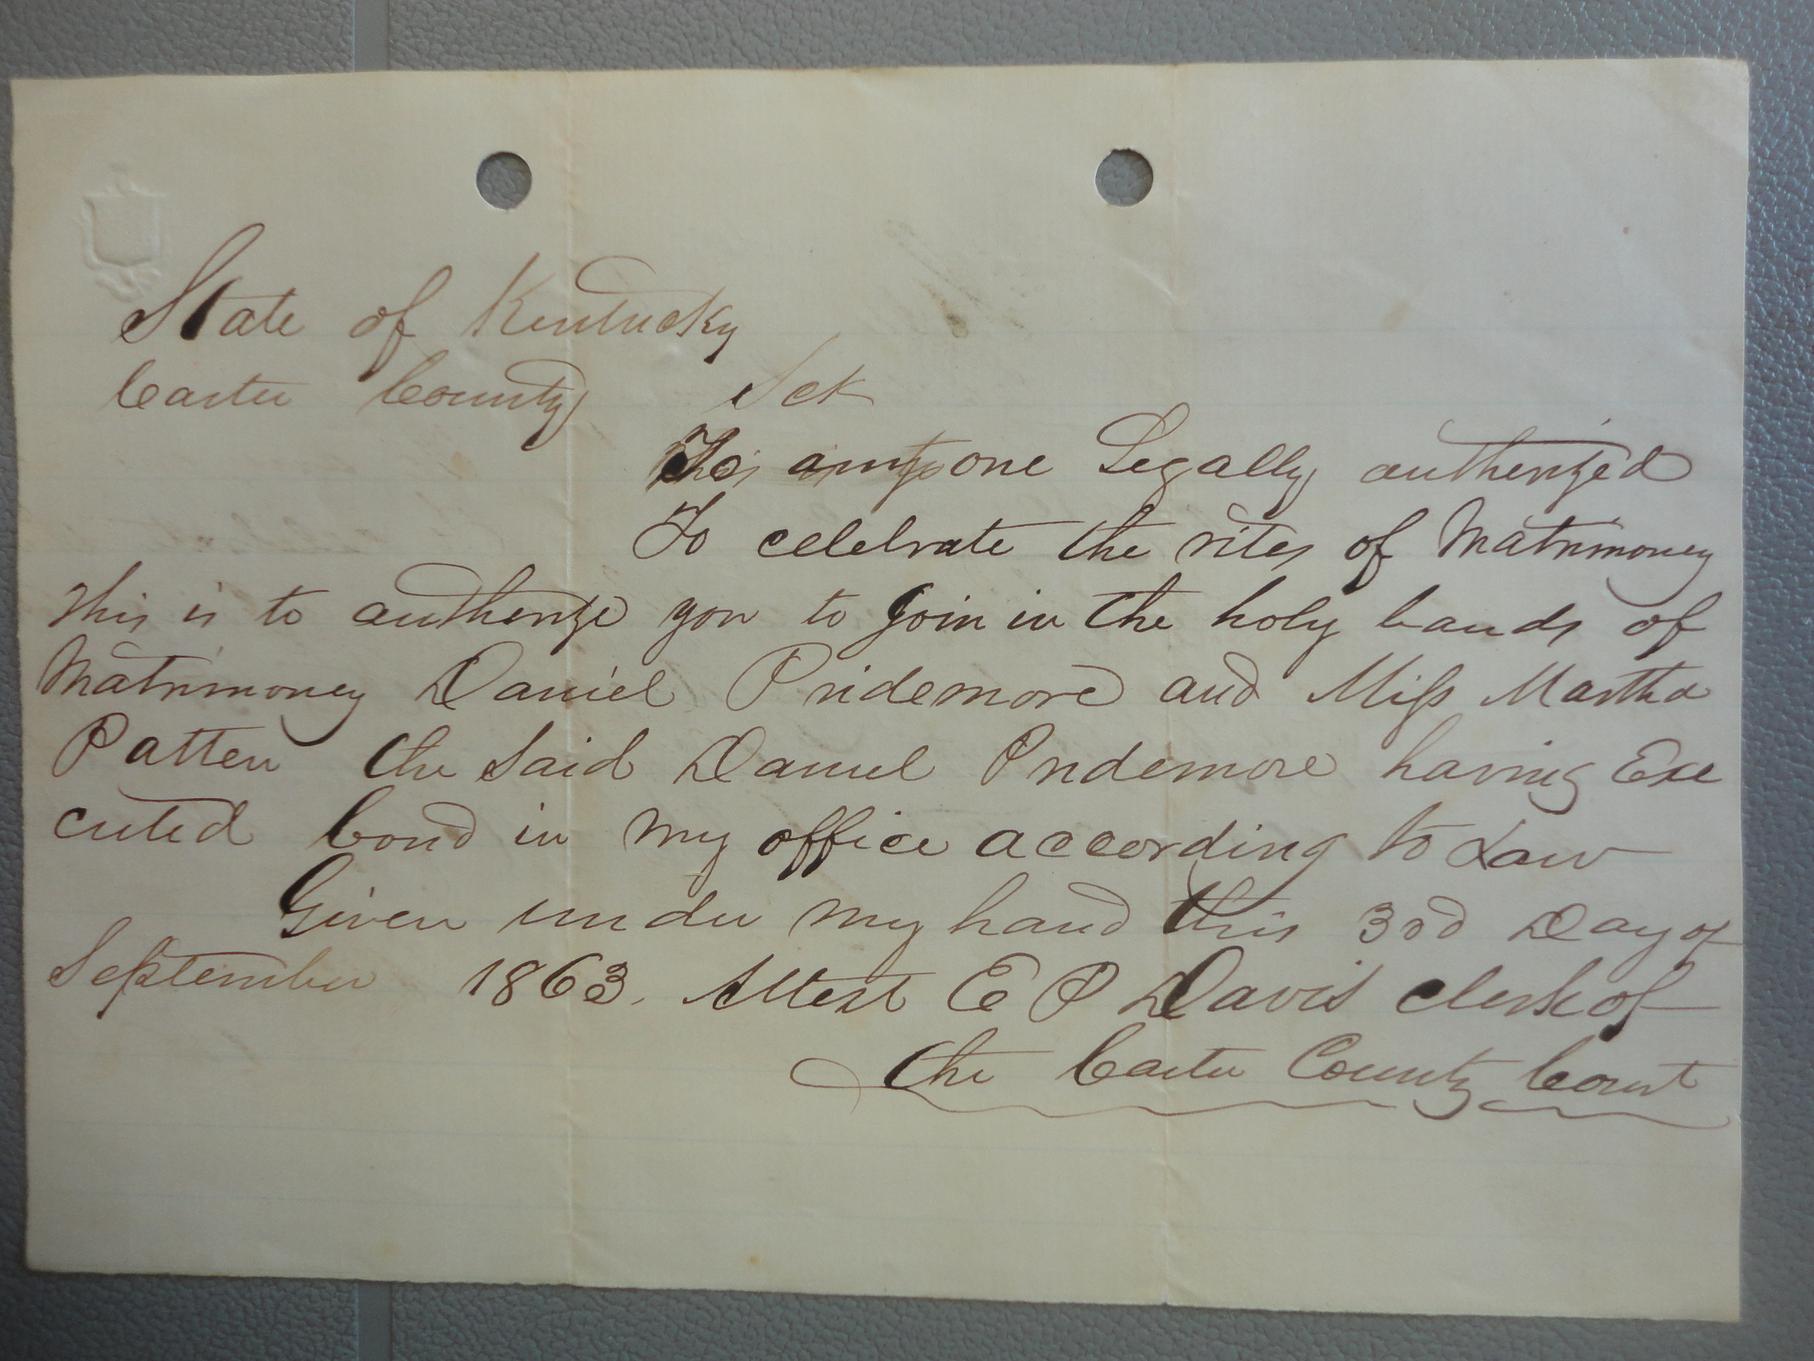 State of Kentucky
Carter County Sct
To any one Legally authorized
To celebrate the rites of Matrimoney
This is to authorize you to join in the holy bands of
Matrimoney Daniel Pridemore and Miss Martha
Patten the Said Daniel Pridemore having Exe
cuted bond in my office according to Law
Given under my hand this 3rd Day of
September 1863. Attest E P Davis clerk of
the Carter County Court